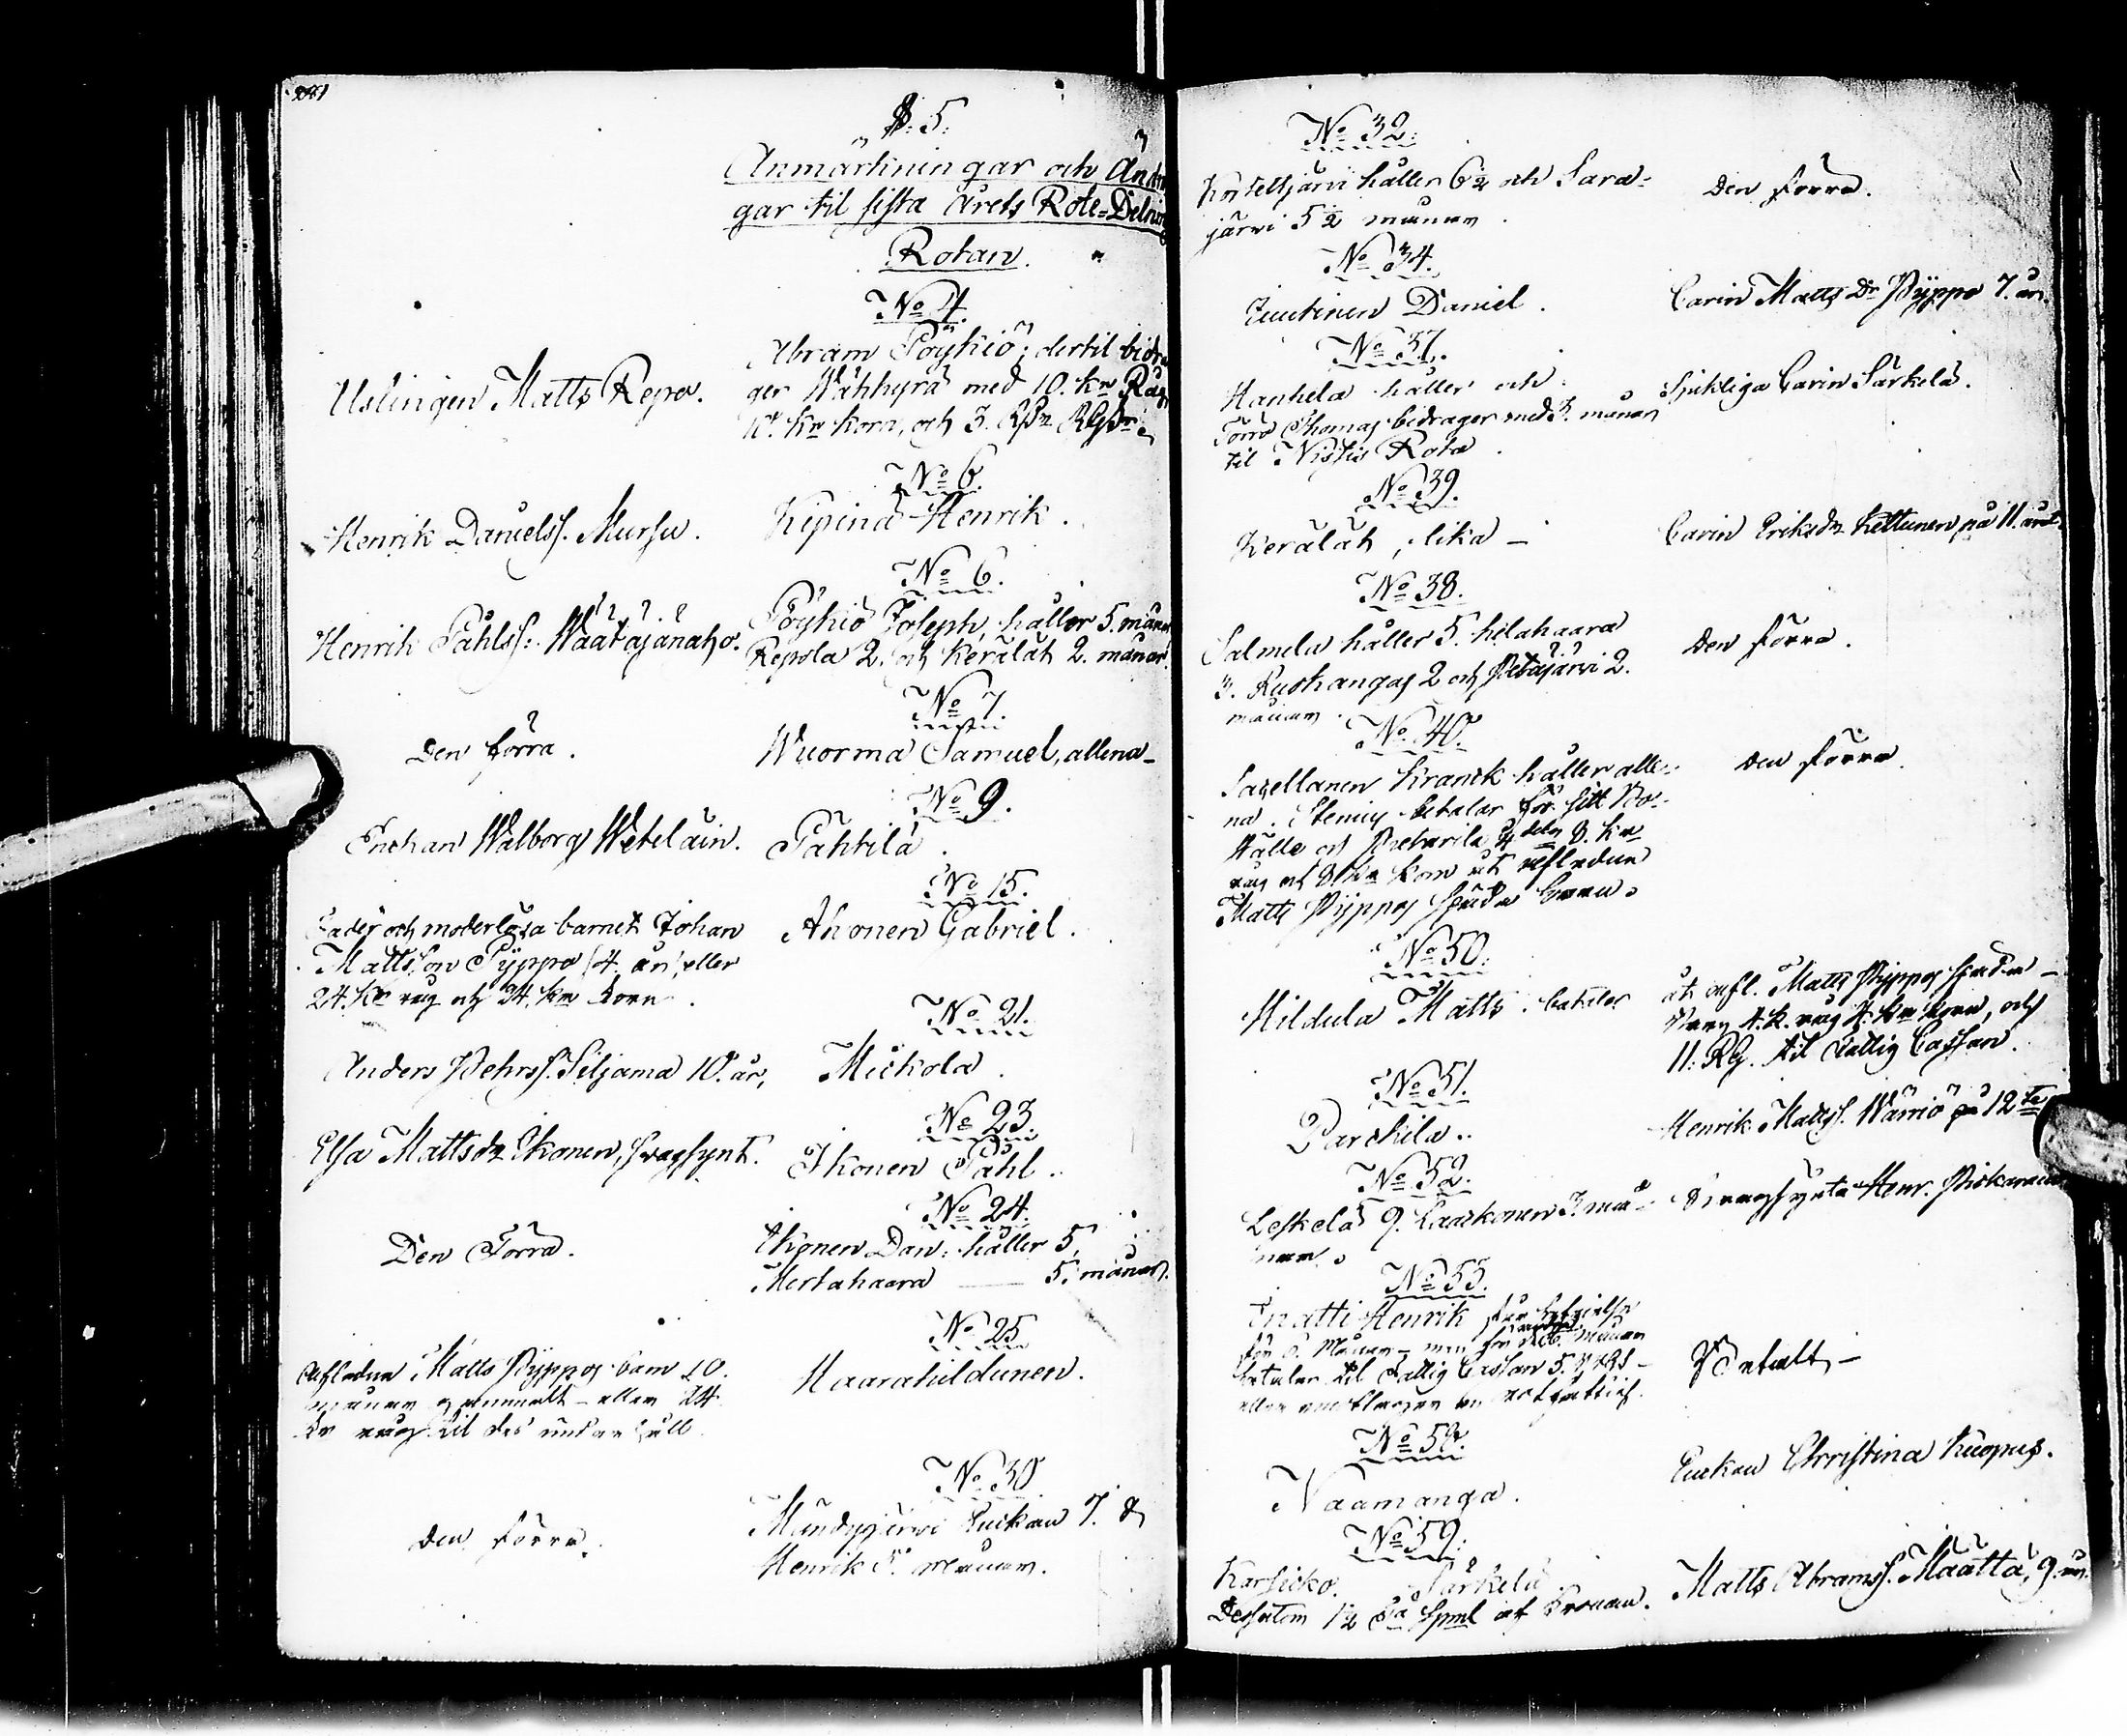 §. 5.
Anmärkningar och Ändrin
gar til sista årets Rote-Delning
Rotan.
No 4.
Uslingen Matts Repo.
Abram Pöykiö; dertil bidra
ger Wähhyrä med 10. kr Råg
10. kr korn, och 3. Rgsr
No 6.
Henrik Danielss. Mursu.
Kipinä Henrik.
No 6.
Henrik Påhlss: Wäätäjänaho.
Pöykiö Joseph, håller 5. månar
Repola 2. och Kerälät 2. månar.
No 7
Den förra.
Wuorma Samuel, allena
No 9.
Enkan Walborg Wetelain.
Pahtila.
No 15.
Fader och moderlösa barnet Johan
Mattsson Pyppo (4. år) eller
24. kr råg och 24. kr korn.
Ahonen Gabriel.
No 21.
Anders Pehrss. Siljama 10. år,
Mickola.
No 23.
Elsa Mattsdr Ikonen, svagsynt.
Ikonen Påhl.
No 24.
Den Förra.
Ikonen Dan: håller 5,
Mertahaara 5. månar.
No 25
Afledne Matts Pyppos barn 10.
månar gammalt – eller 24
kr råg til des underhåll.
Haarahildunen.
No 30
den förra.
Mundyjärvi Enkan 7. &
Henrik 5. månar.
No 32:
Kosteltjärvi håller 6½ och Sara-
järvi 5½ månar.
Den förra.
No 34.
Juutinen Daniel.
Carin Matts Dr Pyppo 7. år.
No 37.
Hanhela håller och
Törrö Thomas bidrager med 3. månar
til Niskis Rota.
Sjukliga Carin Särkelä.
No 39.
Kerälät, lika –
Carin Eriksdr Kettunen på 11. året
No 38.
Salmela håller 5. hilahaara
3. Ruokangas 2 och Petäjärvi 2.
månar.
Den förra.
No 40.
håller alle-
na. Stenius betalar för sitt Bo-
ställe och 8. kr
råg och 8 kr korn åt afledne
Matts Pyppos
den förra.
No 50.
Hildula Matts. betalar
åt afl. Matts Pyppos
4. k. råg 4. kr korn, och
11: Rg. til Fattig Cassan.
No 51.
Parckila.
Henrik Mattss. Wäniö på 12te
No 52.
Leskelä 9. Laackonen 3. må-
nar.
Svagsynta Henr.
No 53.
Enatti Henrik
för 6. Månar – men för de 6. månar
betalar til Fattig Cassan
Betalt –
No 58.
Naamanga.
Enkan Christina Kuopus.
No 59.
Karsicko. Särkelä
Dessutom 1½ af
Matts Abramss. Määttä, 9. år.